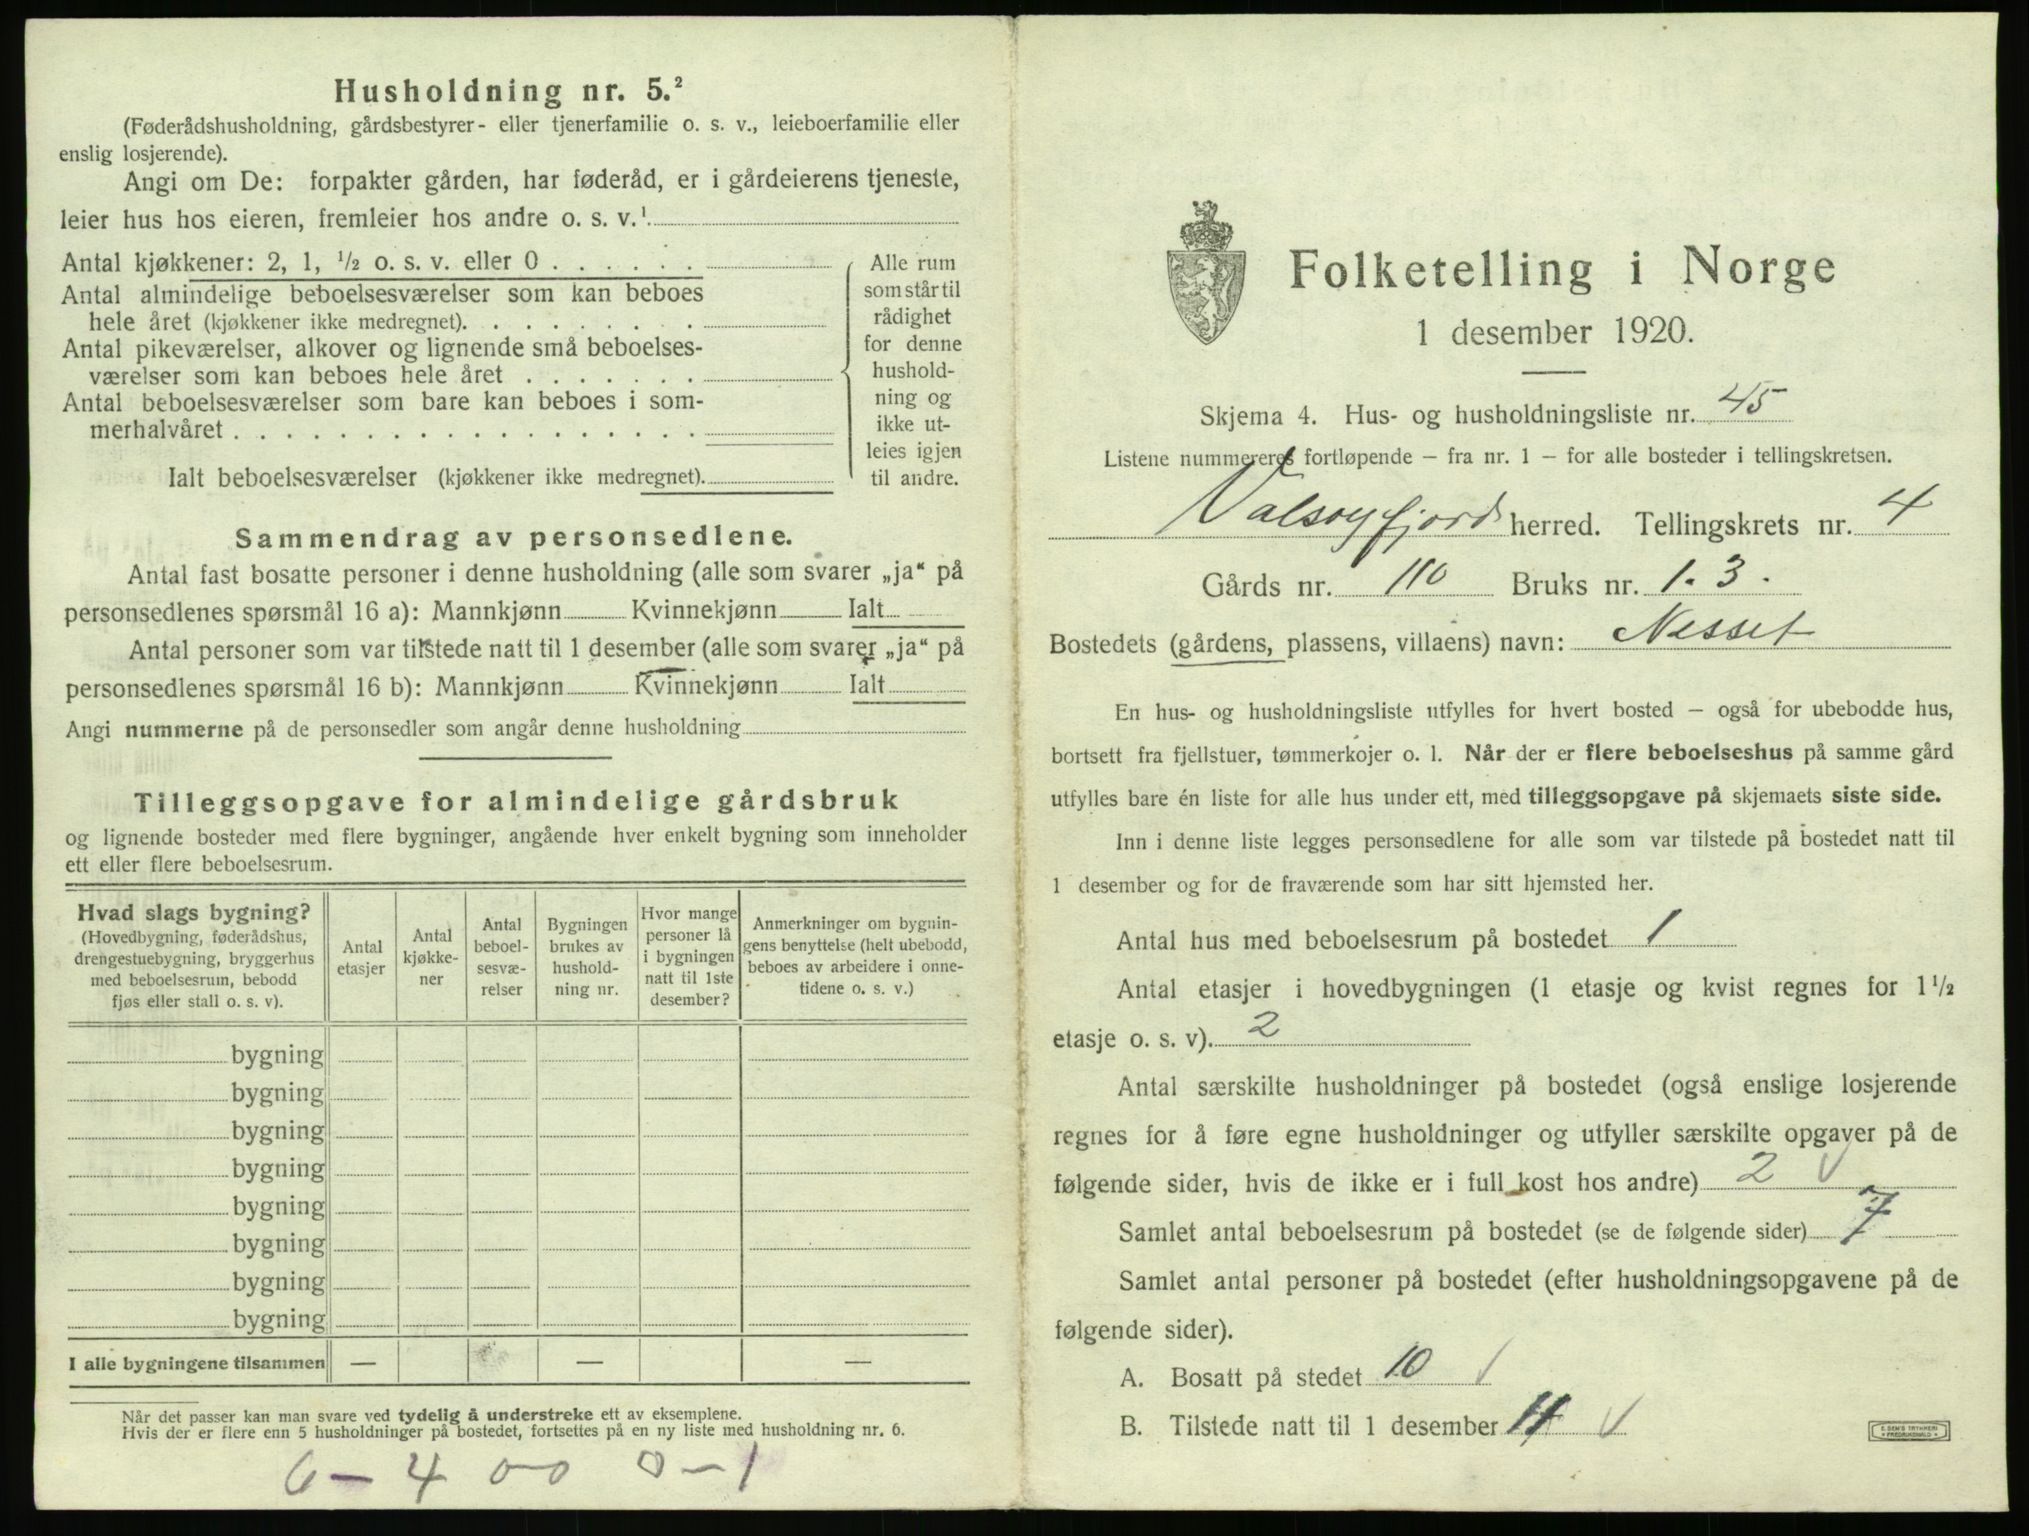 Husholdning nr. 5.²
(Føderådshusholdning, gårdsbestyrer- eller tjenerfamilie o. s. v., leieboerfamilie eller
enslig losjerende).
Angi om De: forpakter gården, har føderåd, er i gårdeierens tjeneste,
leier hus hos eieren, fremleier hos andre o. s. v.¹
Antal kjøkkener: 2, 1, ½ o. s. v. eller 0 . . . . . .
Antal almindelige beboelsesværelser som kan beboes
hele året (kjøkkener ikke medregnet). . . . . . . . .
Antal pikeværelser, alkover og lignende små beboelses-
værelser som kan beboes hele året . . . . . . .
Antal beboelsesværelser som bare kan beboes i som-
merhalvåret . . . . . . . . . . . . . . . . . .
Ialt beboelsesværelser (kjøkkener ikke medregnet).
Alle rum
som står til
rådighet
for denne
hushold-
ning og
ikke ut-
leies igjen
til andre.
Sammendrag av personsedlene.
Antal fast bosatte personer i denne husholdning (alle som svarer „ja“ på
personsedlenes spørsmål 16 a): Mannkjønn Kvinnekjønn Ialt
Antal personer som var tilstede natt til 1 desember (alle som svarer „ja“ på
personsedlenes spørsmål 16 b): Mannkjønn Kvinnekjønn Ialt
Angi nummerne på de personsedler som angår denne husholdning
Tilleggsopgave for almindelige gårdsbruk
og lignende bosteder med flere bygninger, angående hver enkelt bygning som inneholder
ett eller flere beboelsesrum.
Hvad slags bygning?
(Hovedbygning, føderådshus,
drengestuebygning, bryggerhus
med beboelsesrum, bebodd
fjøs eller stall o. s. v).
Antal
etasjer
Antal
kjøkke-
ner
Antal
beboel-
sesvæ-
relser
Bygningen
brukes av
hushold-
ning nr.
Hvor mange
personer lå
i bygningen
natt til 1ste
desember?
Anmerkninger om bygnin-
gens benyttelse (helt ubebodd,
beboes av arbeidere i onne-
tidene o. s. v.)
bygning
bygning
bygning
bygning
bygning
bygning
bygning
bygning
I alle bygningene tilsammen — — —
Når det passer kan man svare ved tydelig å understreke ett av eksemplene.
Hvis der er flere enn 5 husholdninger på bostedet, fortsettes på en ny liste med husholdning nr. 6.
6 - 4 0-0 0-1
Folketelling i Norge
1 desember 1920.
Skjema 4. Hus- og husholdningsliste nr. 45
Listene nummereres fortløpende – fra nr. 1 – for alle bosteder i tellingskretsen.
Valsøyfjord herred. Tellingskrets nr. 4
Gårds nr. 110 Bruks nr. 1. 3.
Bostedets (gårdens, plassens, villaens) navn: Nesset
En hus- og husholdningsliste utfylles for hvert bosted – også for ubebodde hus,
bortsett fra fjellstuer, tømmerkojer o. l. Når der er flere beboelseshus på samme gård
utfylles bare én liste for alle hus under ett, med tilleggsopgave på skjemaets siste side.
Inn i denne liste legges personsedlene for alle som var tilstede på bostedet natt til
1 desember og for de fraværende som har sitt hjemsted her.
Antal hus med beboelsesrum på bostedet 1
Antal etasjer i hovedbygningen (1 etasje og kvist regnes for 1½
etasje o. s. v). 2
Antal særskilte husholdninger på bostedet (også enslige losjerende
regnes for å føre egne husholdninger og utfyller særskilte opgaver på de
følgende sider, hvis de ikke er i full kost hos andre) 2 √
Samlet antal beboelsesrum på bostedet (se de følgende sider) 7
Samlet antal personer på bostedet (efter husholdningsopgavene på de
følgende sider).
A. Bosatt på stedet 10 √
B. Tilstede natt til 1 desember 11 √